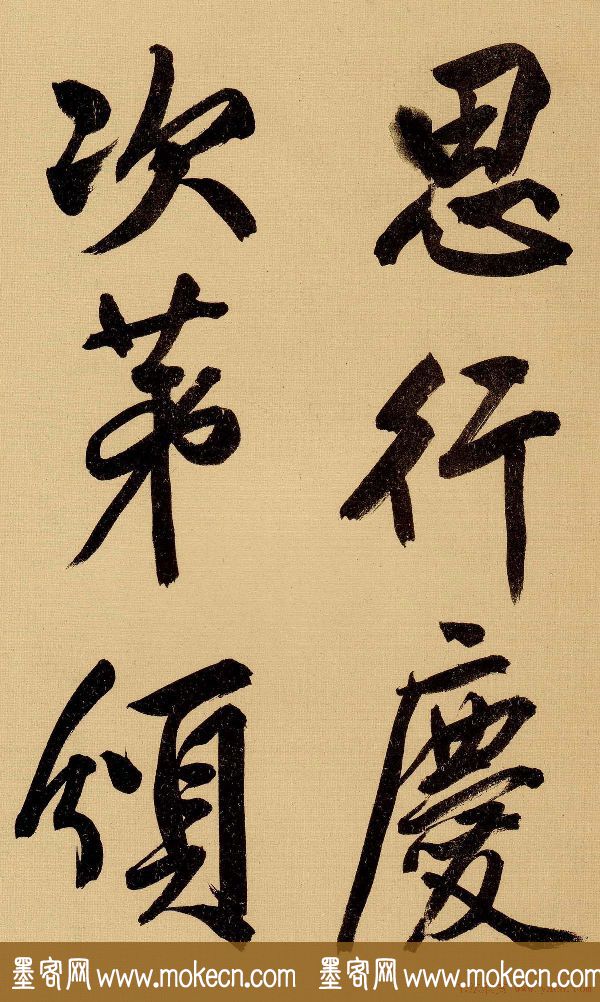 思行慶
次第頒
墨客网 www.mokecn.com 墨客网 www.mokecn.com